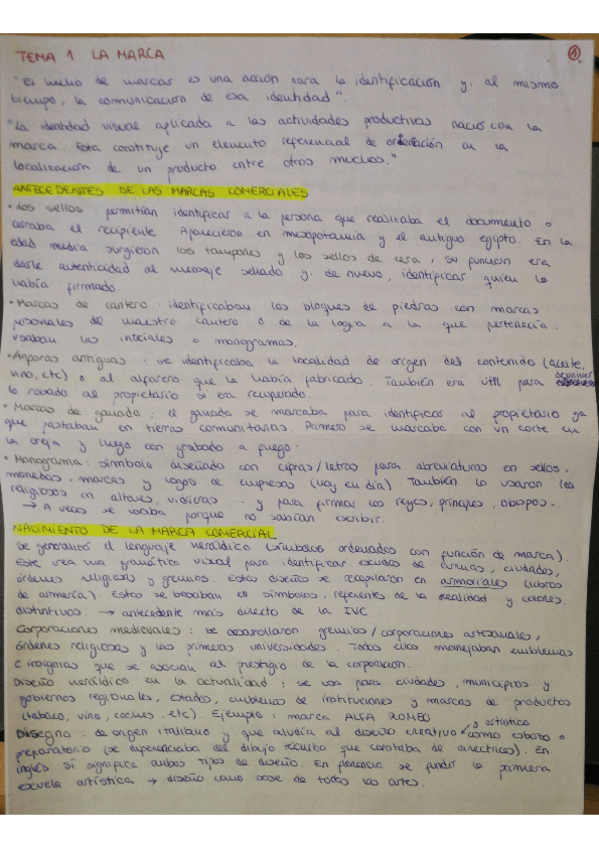 TEMA 1 LA MARCA
1
"El hecho de marcar es una acción para la identificación y, al mismo
tiempo, la comunicación de esa identidad".
"La identidad visual aplicada a las actividades productivas nació con la
marca. Esta constituye un elemento referencial de orientación en la
localización de un producto entre otros muchos."
ANTECEDENTES DE LAS MARCAS COMERCIALES
• Los sellos: permitían identificar a la persona que realizaba el documento o
cerraba el recipiente. Aparecieron en mesopotamia y el antiguo egipto. En la
edad media surgieron los tampones y los sellos de cera, su función era
darle autenticidad al mensaje sellado y, de nuevo, identificar quien lo
había firmado.
• Marcas de cantero: identificaban los bloques de piedras con marcas
personales del maestro cantero o de la logia a la que pertenecía.
Usaban las iniciales o monogramas.
• Ánforas antiguas: se identificaba la localidad de origen del contenido (aceite,
vino, etc) o al alfarero que la había fabricado. También era útil para devolver
lo robado al propietario si era recuperado.
• Marcas de ganado: el ganado se marcaba para identificar al propietario ya
que pastaban en tierras comunitarias. Primero se marcaba con un corte en
la oreja y luego con grabado a fuego.
• Monograma: símbolo diseñado con cifras/letras para abreviaturas en sellos,
monedas, marcas y logos de empresas (hoy en día). También lo usaron los
religiosos en altares, vidrieras ... y para firmar los reyes, príncipes, obispos.
→ A veces se usaba porque no sabían escribir.
NACIMIENTO DE LA MARCA COMERCIAL
Se generalizó el lenguaje heráldico (símbolos ordenados con función de marca).
Este crea una gramática visual para identificar escudos de armas, ciudades,
órdenes religiosas y gremios. Estos diseños se recopilaron en armoriales (libros
de armería). Estos se basaban en símbolos, referentes de la realidad y colores
distintivos → antecedente más directo de la IVC
Corporaciones medievales: se desarrollaron gremios/corporaciones artesanales,
órdenes religiosas y las primeras universidades. Todos ellos manejaban emblemas
e insignias que se asocian al prestigio de la corporación.
Diseño heráldico en la actualidad: se usa para ciudades, municipios y
gobiernos regionales, estados, emblemas de instituciones y marcas de productos
(tabaco, vino, coches, etc). Ejemplo: marca ALFA ROMEO
Disegno: de origen italiano y que aludía al diseño creativo y artístico como esbozo o
preparatorio (se diferenciaba del dibujo técnico que constaba de directrices). En
inglés sí significa ambos tipos de diseño. En florencia se fundó la primera
escuela artística → diseño como base de todas las artes.